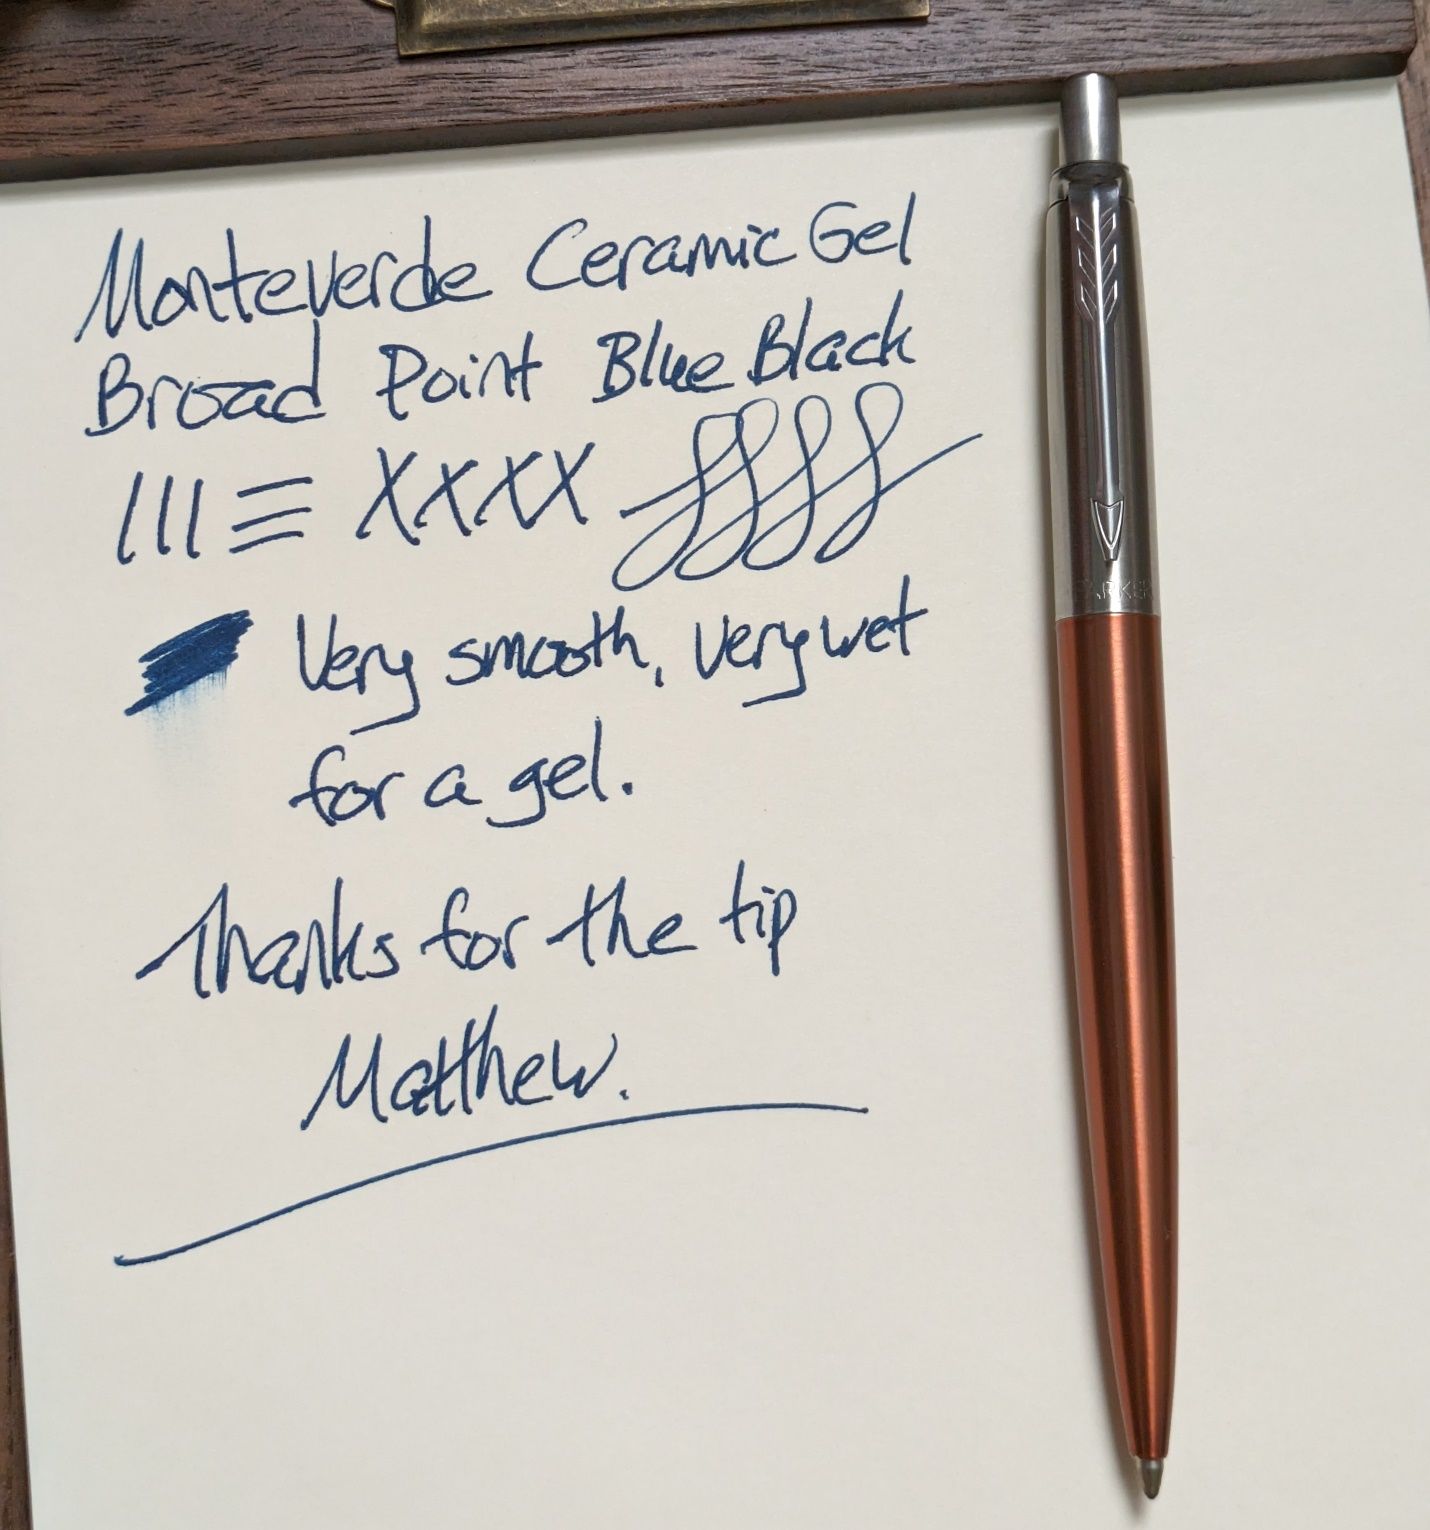 Monteverde Ceramic Gel
Broad Point Blue Black
III ≡ XXXX
Very smooth, very wet
for a gel.
Thanks for the tip
Matthew.
PARKER